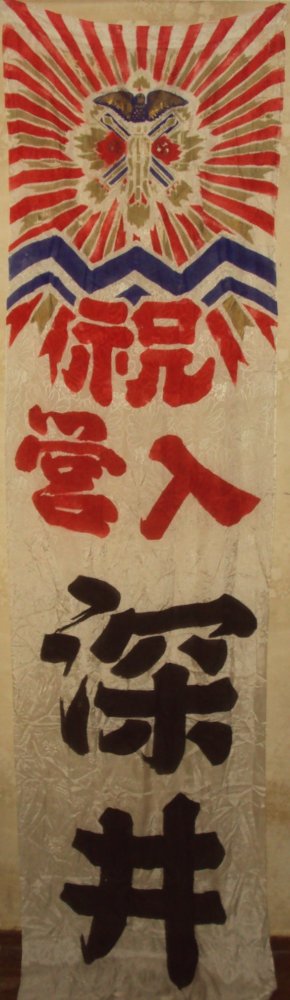 祝
入營
深井